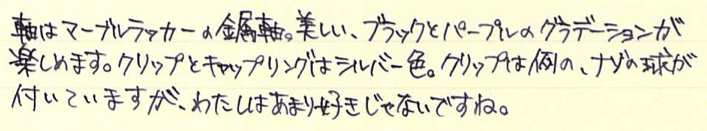 軸はマーブルラッカーの金属軸。美しい、ブラックとパープルのグラデーションが
楽しめます。クリップとキャップリングはシルバー色。クリップは例の、ナゾの球が
付いていますが、わたしはあまり好きじゃないですね。